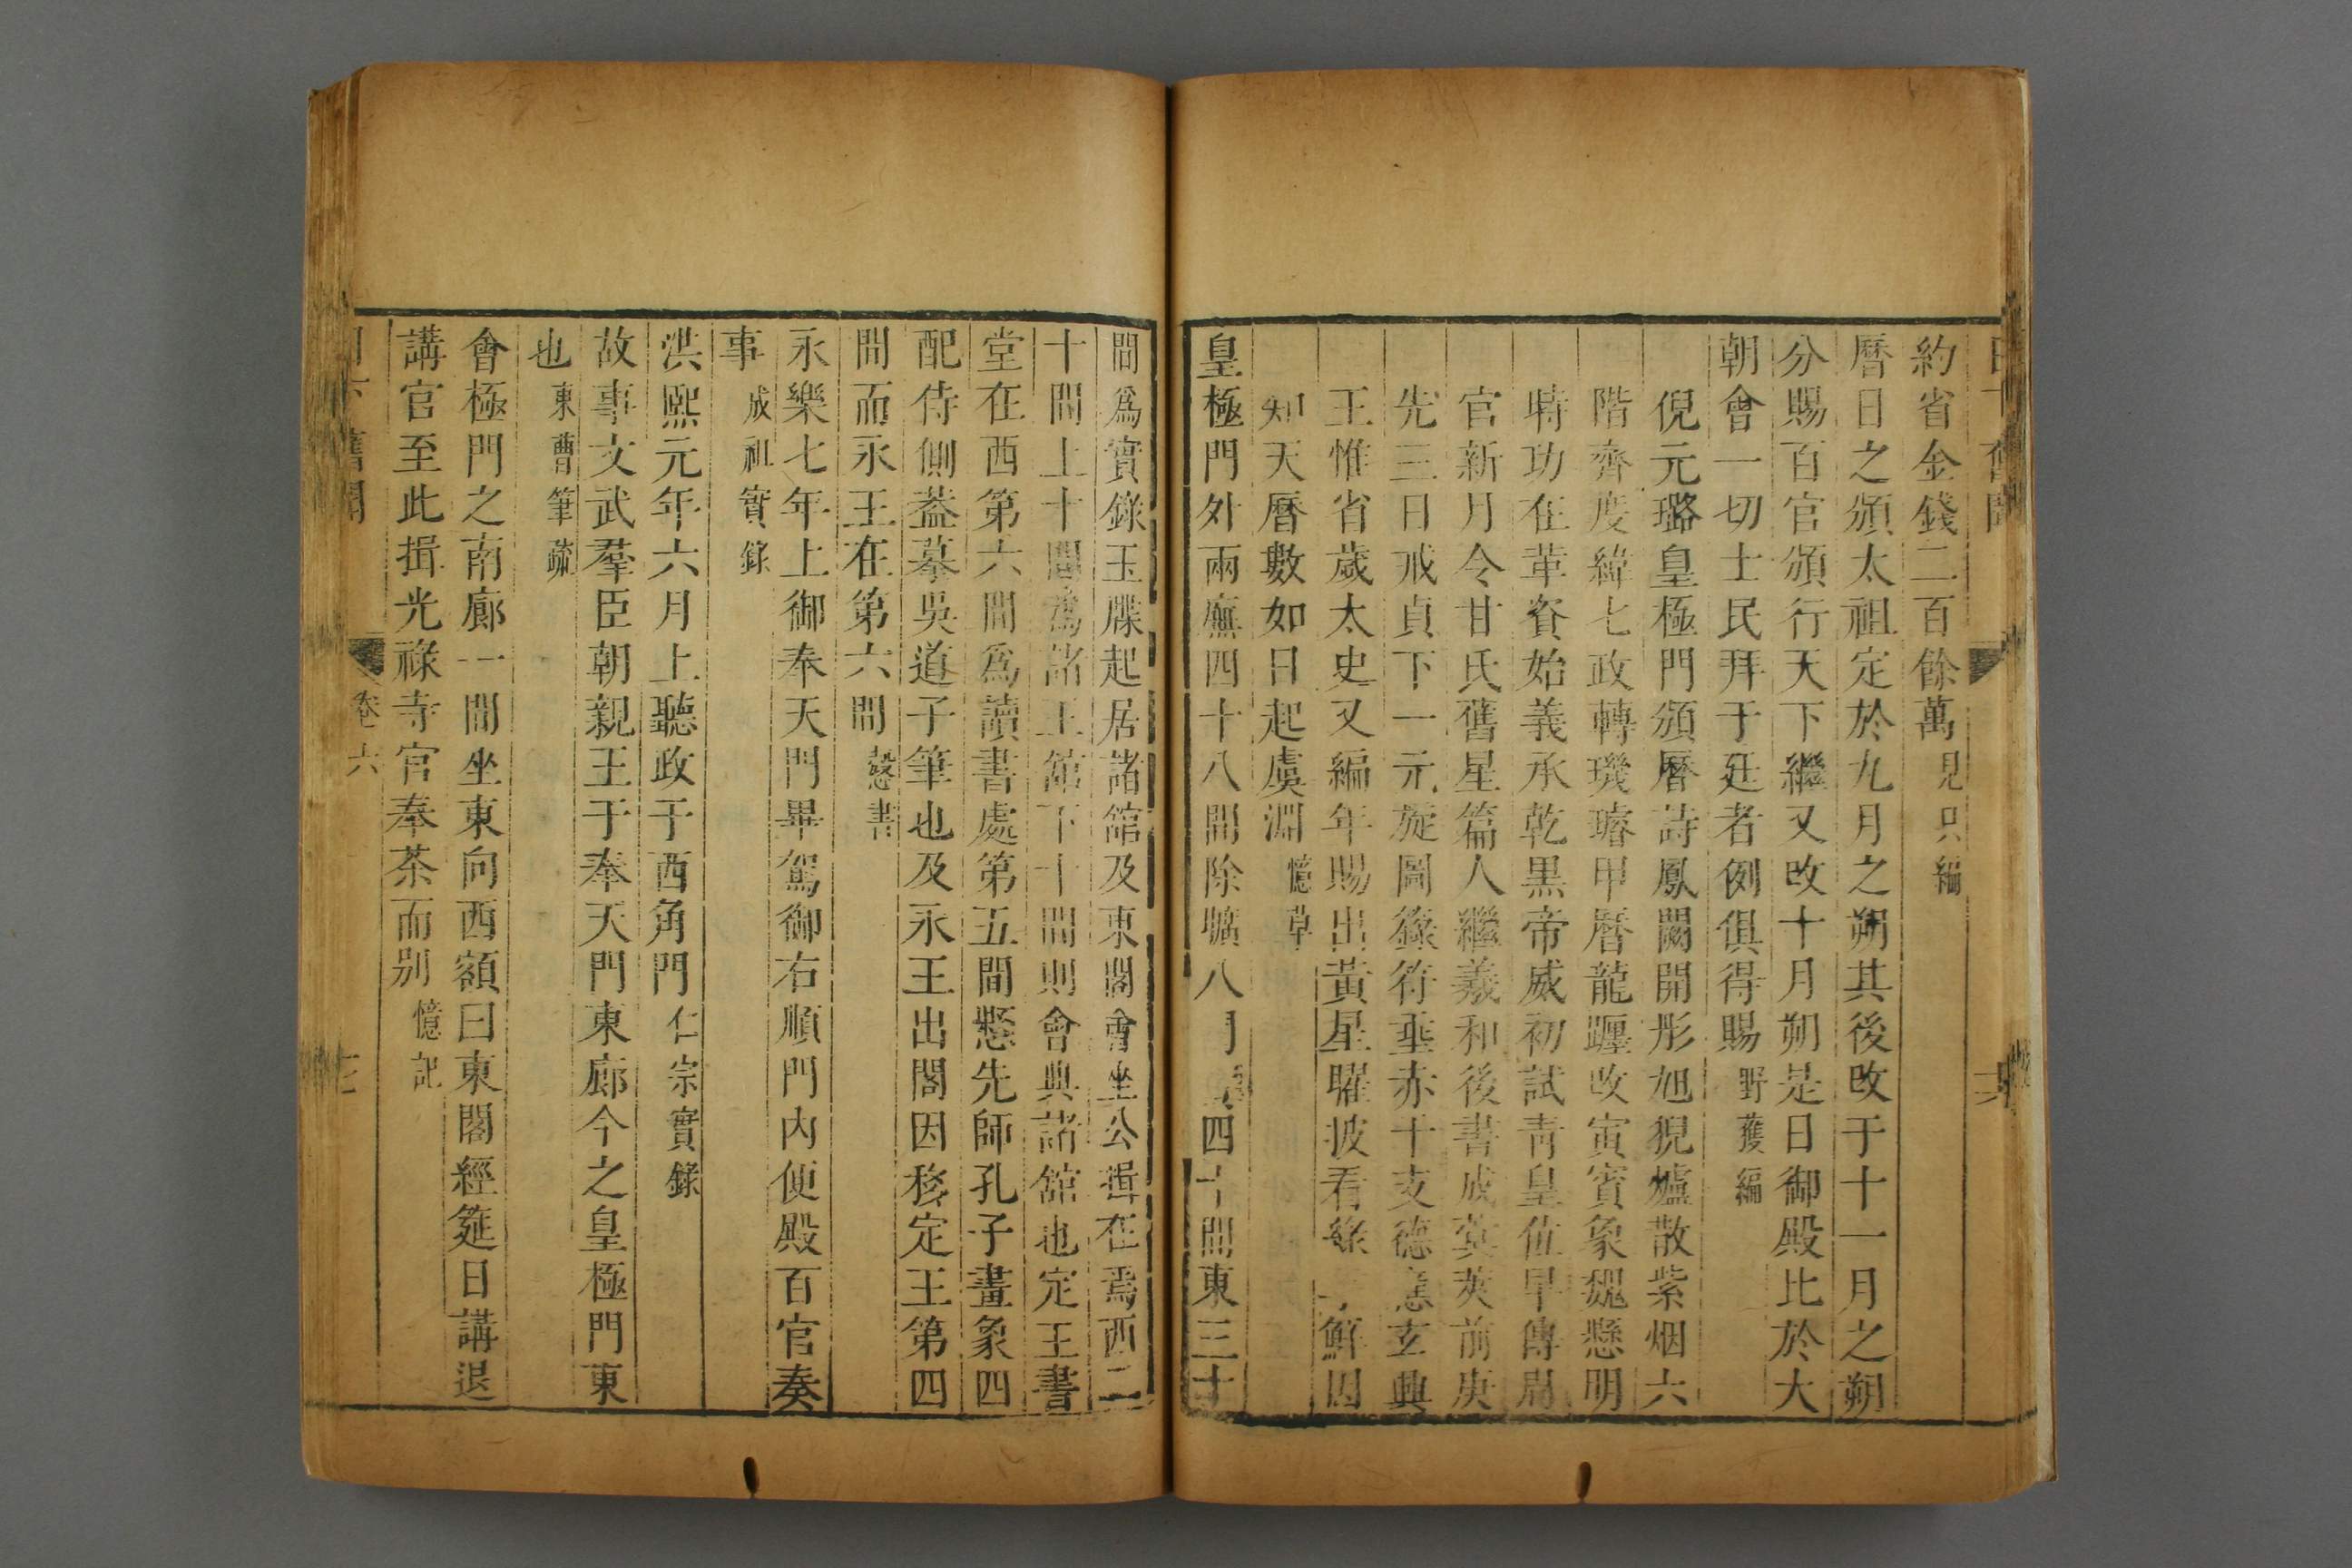 日下舊聞
約省金錢二百餘萬見只編
曆日之頒太祖定於九月之朔其後改于十一月之朔
分賜百官頒行天下繼又改十月朔是日御殿比於大
朝會一切士民拜于廷者例俱得賜野獲編
倪元璐皇極門頒曆詩鳳闕開彤旭猊爐散紫烟六
階齊度緯七政轉璣璿甲曆龍躔改寅賓象魏懸明
時功在革資始義承乾黑帝威初試青皇位早傳局
官新月令甘氏舊星篇人繼羲和後書成蓂莢前庚
先三日戒貞下一元旋圖籙符垂赤干支德應玄興
王惟省歲太史又編年賜出黃星曜披看綠 鮮因
知天曆數如日起虞淵憶草
皇極門外兩廡四十八間除曠八間 四十間東三十
間爲實錄玉牒起居諸館及東閣會坐公揖在焉西二
十間上十間爲諸王館下十間則會典諸館也定王書
堂在西第六間爲讀書處第五間懸先師孔子畫象四
配侍側葢摹吳道子筆也及永王出閣因移定王第四
間而永王在第六間慤書
永樂七年上御奉天門畢駕御右順門內便殿百官奏
事成祖實錄
洪熙元年六月上聽政于西角門仁宗實錄
故事文武羣臣朝親王于奉天門東廊今之皇極門東
也東曹筆疏
會極門之南廊一間坐東向西額曰東閣經筵日講退
講官至此揖光祿寺官奉茶而別憶記
舊聞 卷六 七